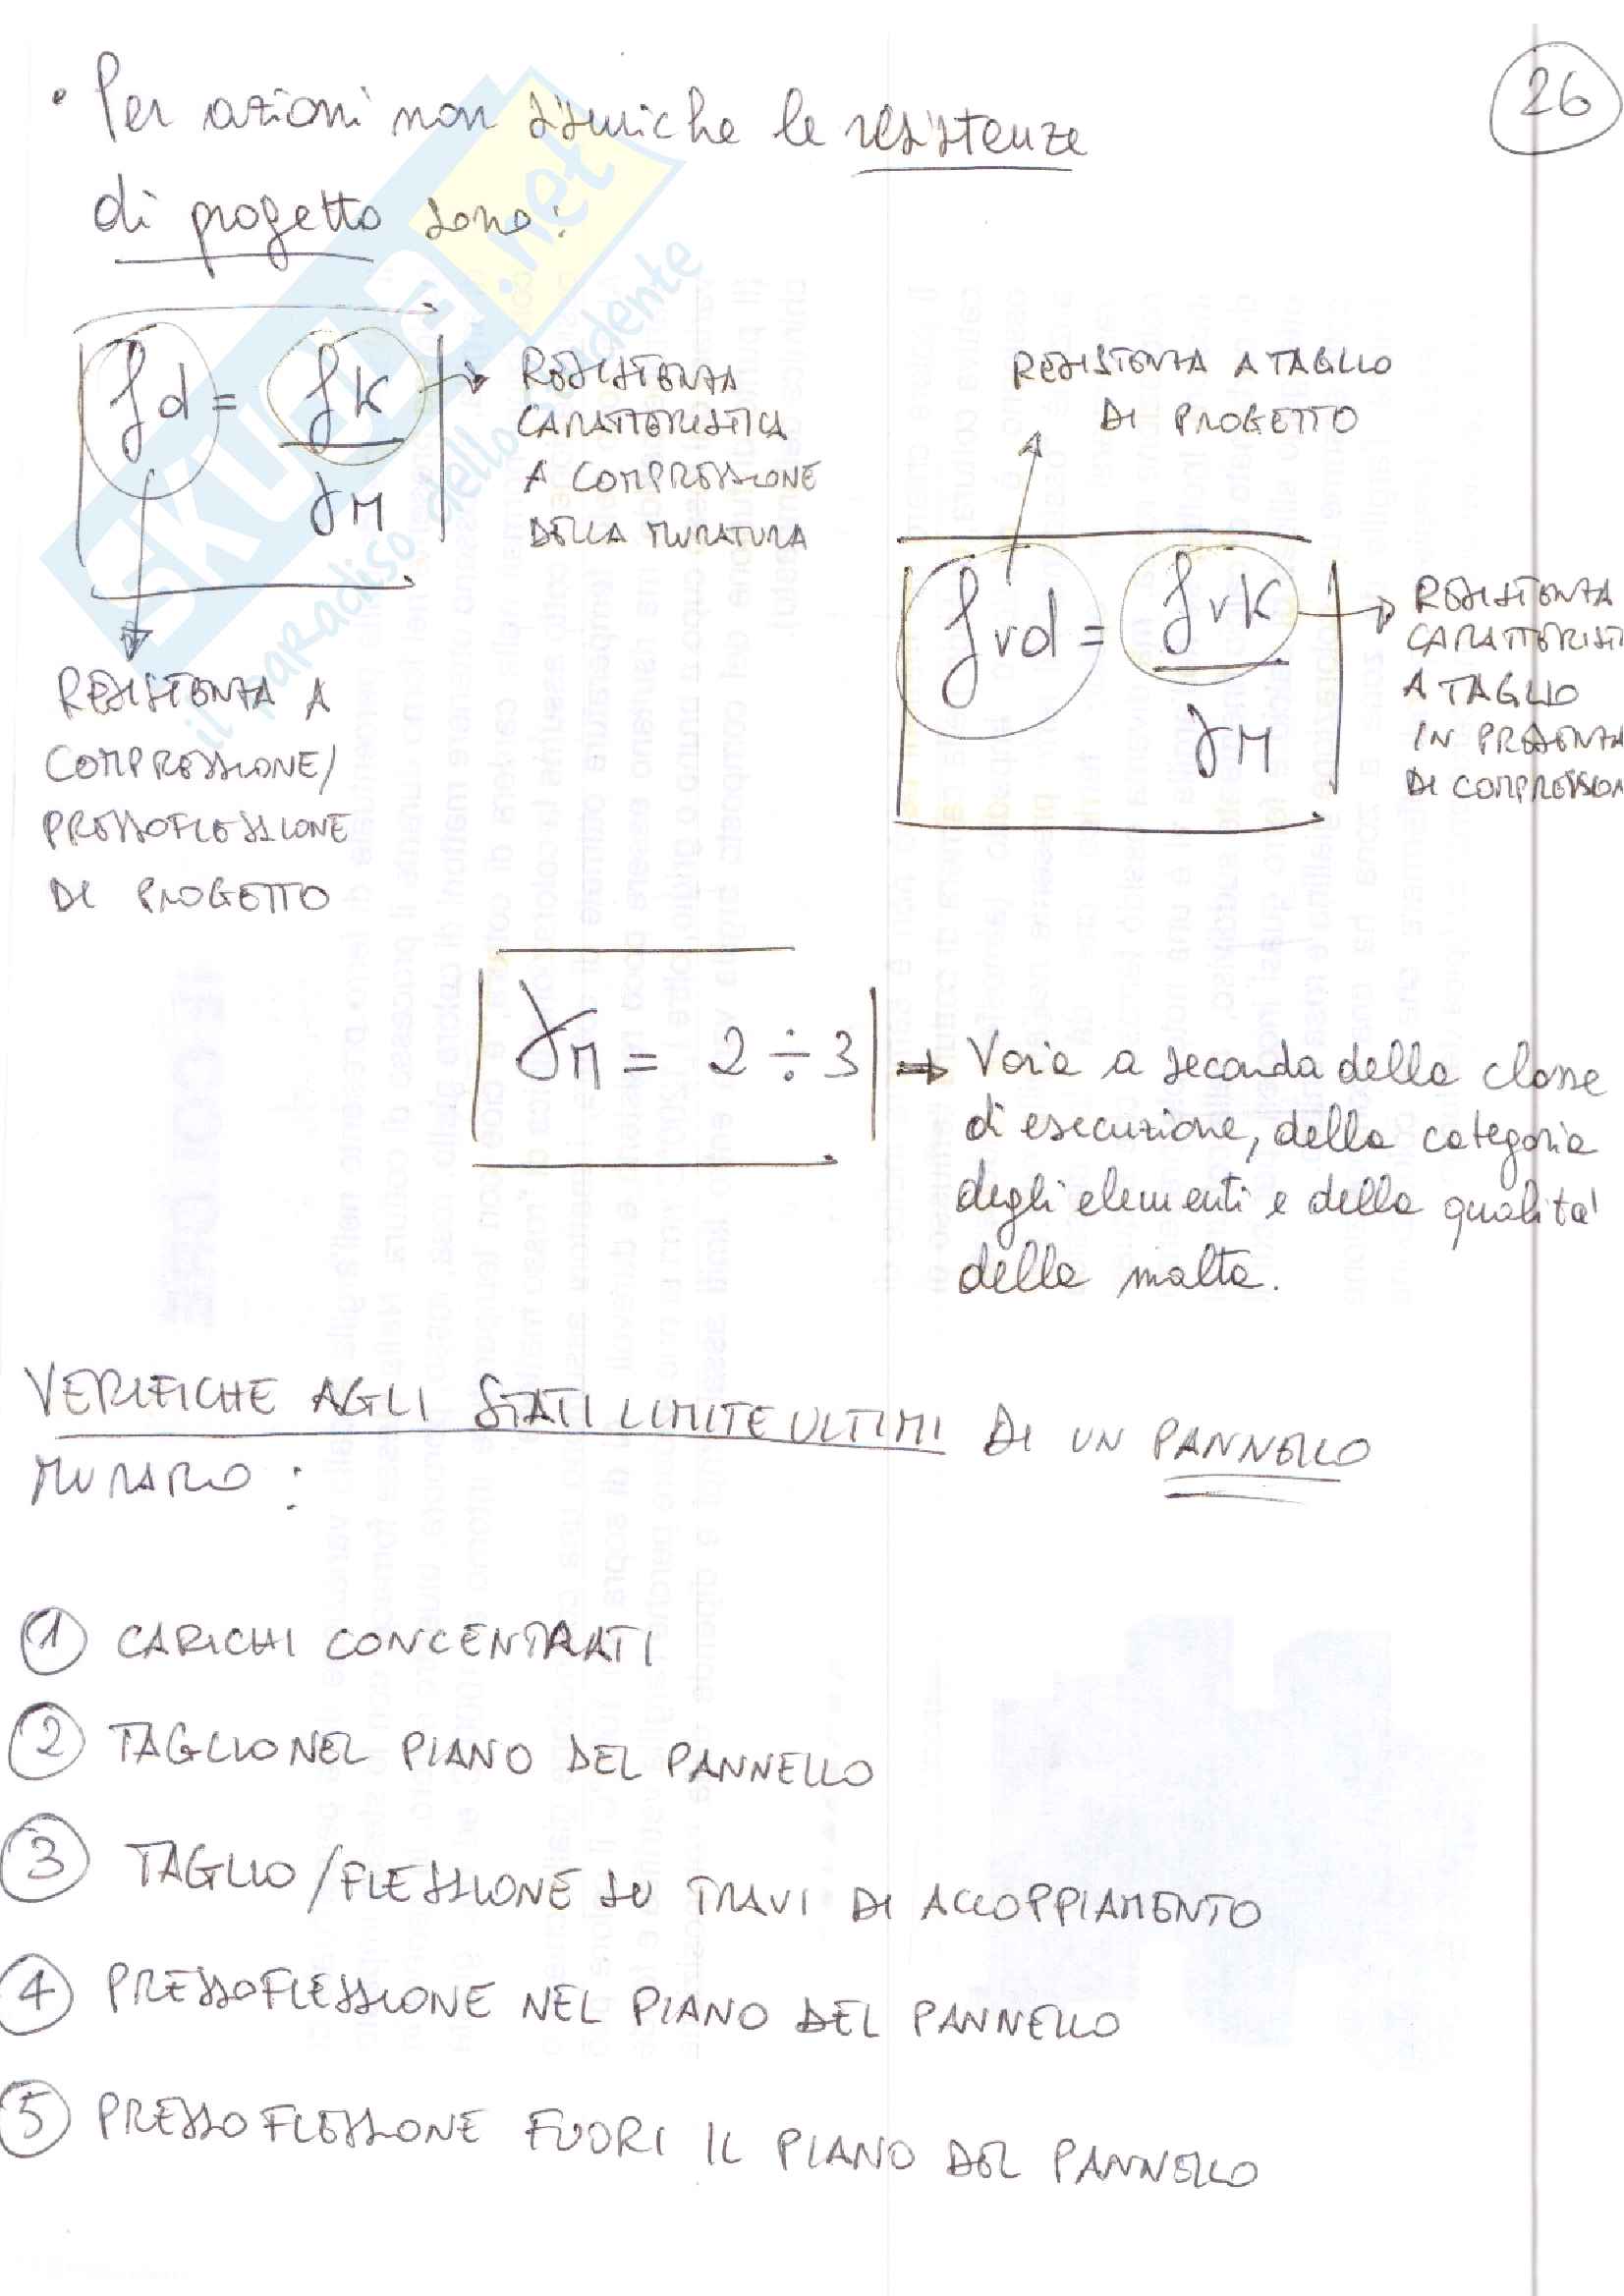 26
• Per azioni non sismiche le resistenze
di progetto sono:
fd = fk / γM
RESISTENZA
CARATTERISTICA
A COMPRESSIONE
DELLA MURATURA
RESISTENZA A
COMPRESSIONE/
PRESSOFLESSIONE
DI PROGETTO
RESISTENZA A TAGLIO
DI PROGETTO
fvd = fvk / γM
RESISTENZA
CARATTERIST
A TAGLIO
IN PRESENZA
DI COMPRESSION
γM = 2 ÷ 3 → Varia a seconda della classe
di esecuzione, della categoria
degli elementi e della qualita'
della malta.
VERIFICHE AGLI STATI LIMITE ULTIMI DI UN PANNELLO
MURARIO:
1 CARICHI CONCENTRATI
2 TAGLIO NEL PIANO DEL PANNELLO
3 TAGLIO/FLESSIONE SU TRAVI DI ACCOPPIAMENTO
4 PRESSOFLESSIONE NEL PIANO DEL PANNELLO
5 PRESSOFLESSIONE FUORI IL PIANO DEL PANNELLO
SKUOLA.net
il paradiso dello studente